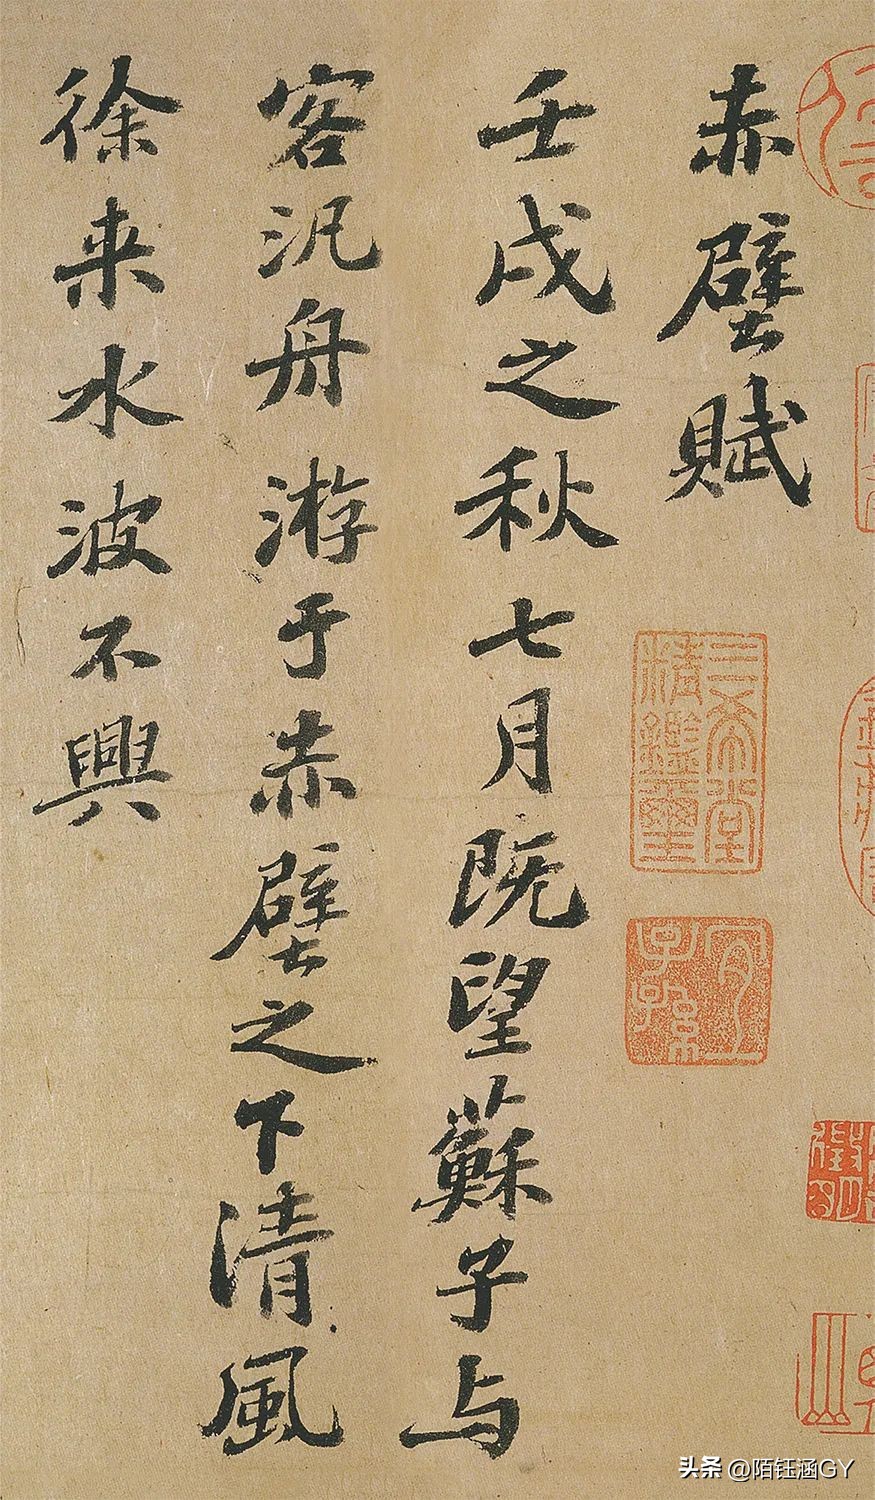 赤壁賦
壬戌之秋七月既望蘇子与
客汎舟游于赤壁之下清風
徐来水波不興
三希堂
精鑑璽
宜
子孫
头条 @陌钰涵GY